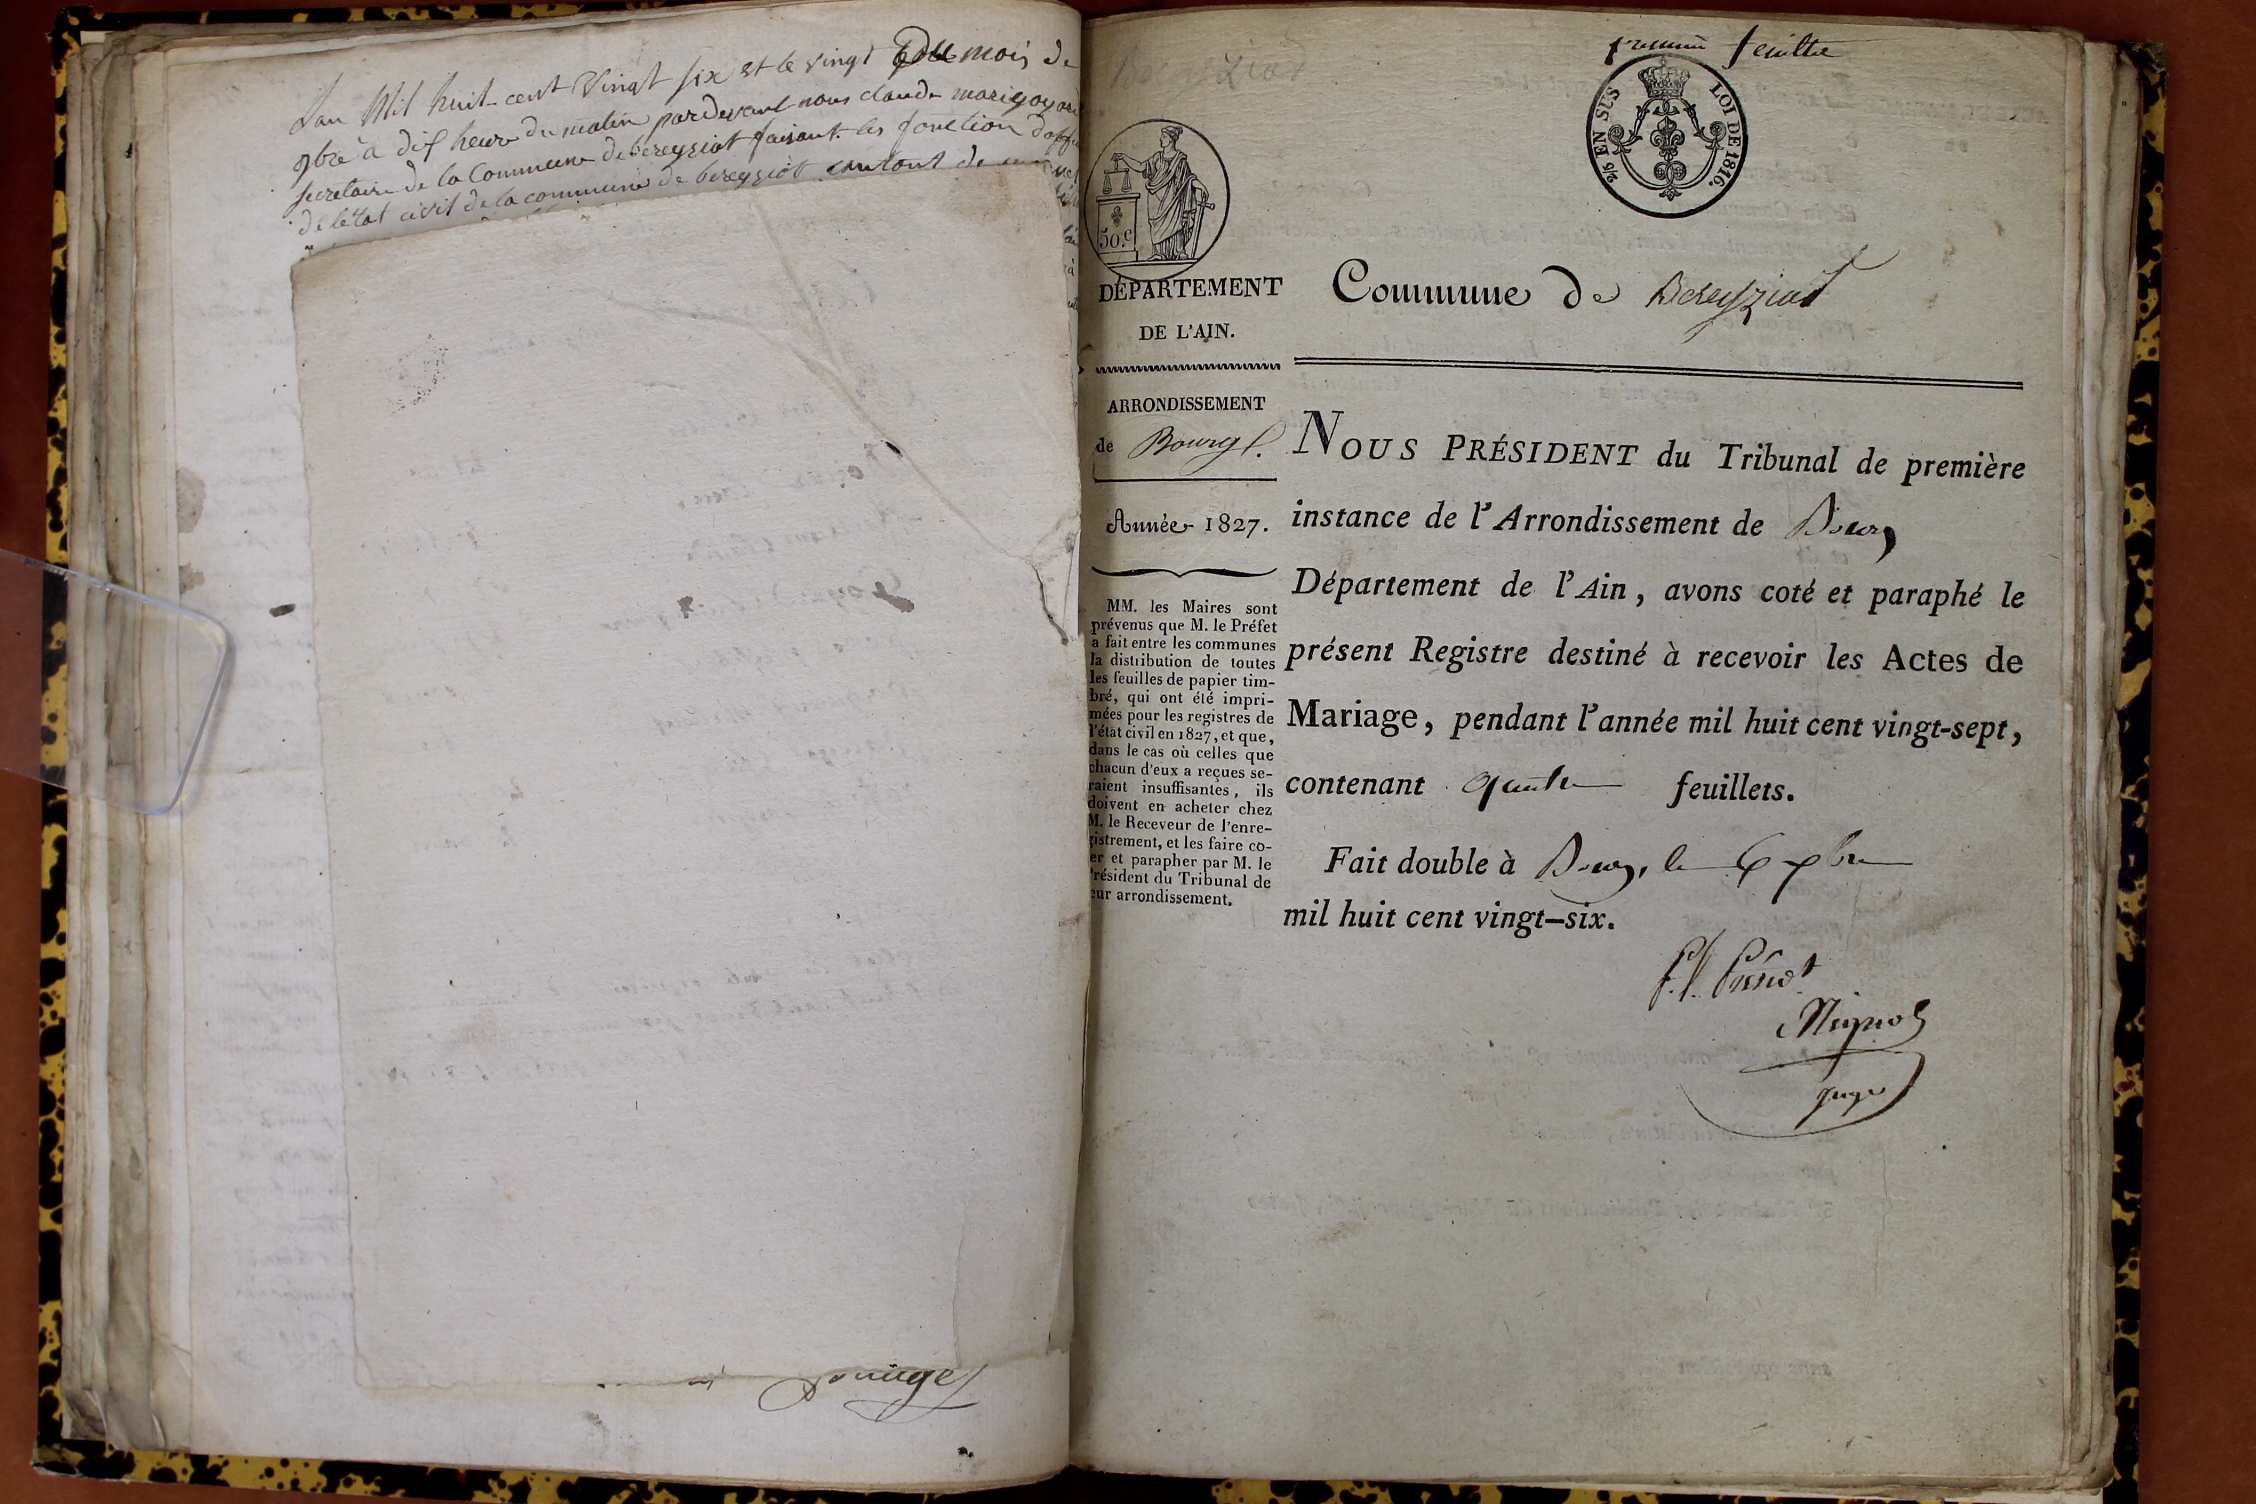 Lan Mil huit-cent Vingt six et le vingt du mois de
9bre à dix heure du matin pardevant nous claude marie goyard
secretaire de la Commune de bereyziat faisant les fonction d'offi
de létat civil de la commune de bereyziat canton de
pouuge
premier feuillet
2/5 EN SUS LOI DE 1816.
50.c
DÉPARTEMENT
DE L'AIN.
ARRONDISSEMENT
de Bourg
Année 1827.
MM. les Maires sont
prévenus que M. le Préfet
a fait entre les communes
la distribution de toutes
les feuilles de papier tim-
bré, qui ont été impri-
mées pour les registres de
l'état civil en 1827, et que,
dans le cas où celles que
chacun d'eux a reçues se-
raient insuffisantes, ils
doivent en acheter chez
M. le Receveur de l'enre-
gistrement, et les faire co-
er et parapher par M. le
Président du Tribunal de
eur arrondissement.
Commune de Bereyziat
NOUS PRÉSIDENT du Tribunal de première
instance de l'Arrondissement de Bourg
Département de l'Ain, avons coté et paraphé le
présent Registre destiné à recevoir les Actes de
Mariage, pendant l'année mil huit cent vingt-sept,
contenant quatre feuillets.
Fait double à Bourg, le 6 xbre
mil huit cent vingt-six.
juge